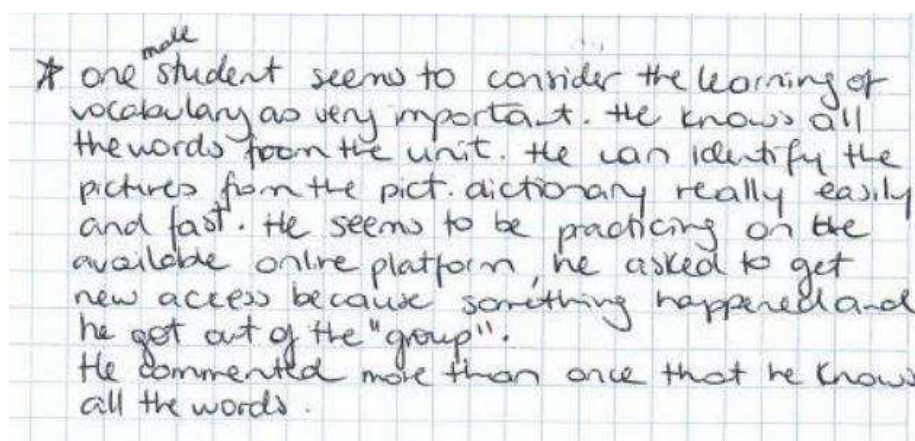 male
* one student seems to consider the learning of
vocabulary as very important. He knows all
the words from the unit. He can identify the
pictures from the pict. dictionary really easily
and fast. He seems to be practicing on the
available online platform, he asked to get
new access because something happened and
he got out of the "group".
He commented more than once that he knows
all the words.